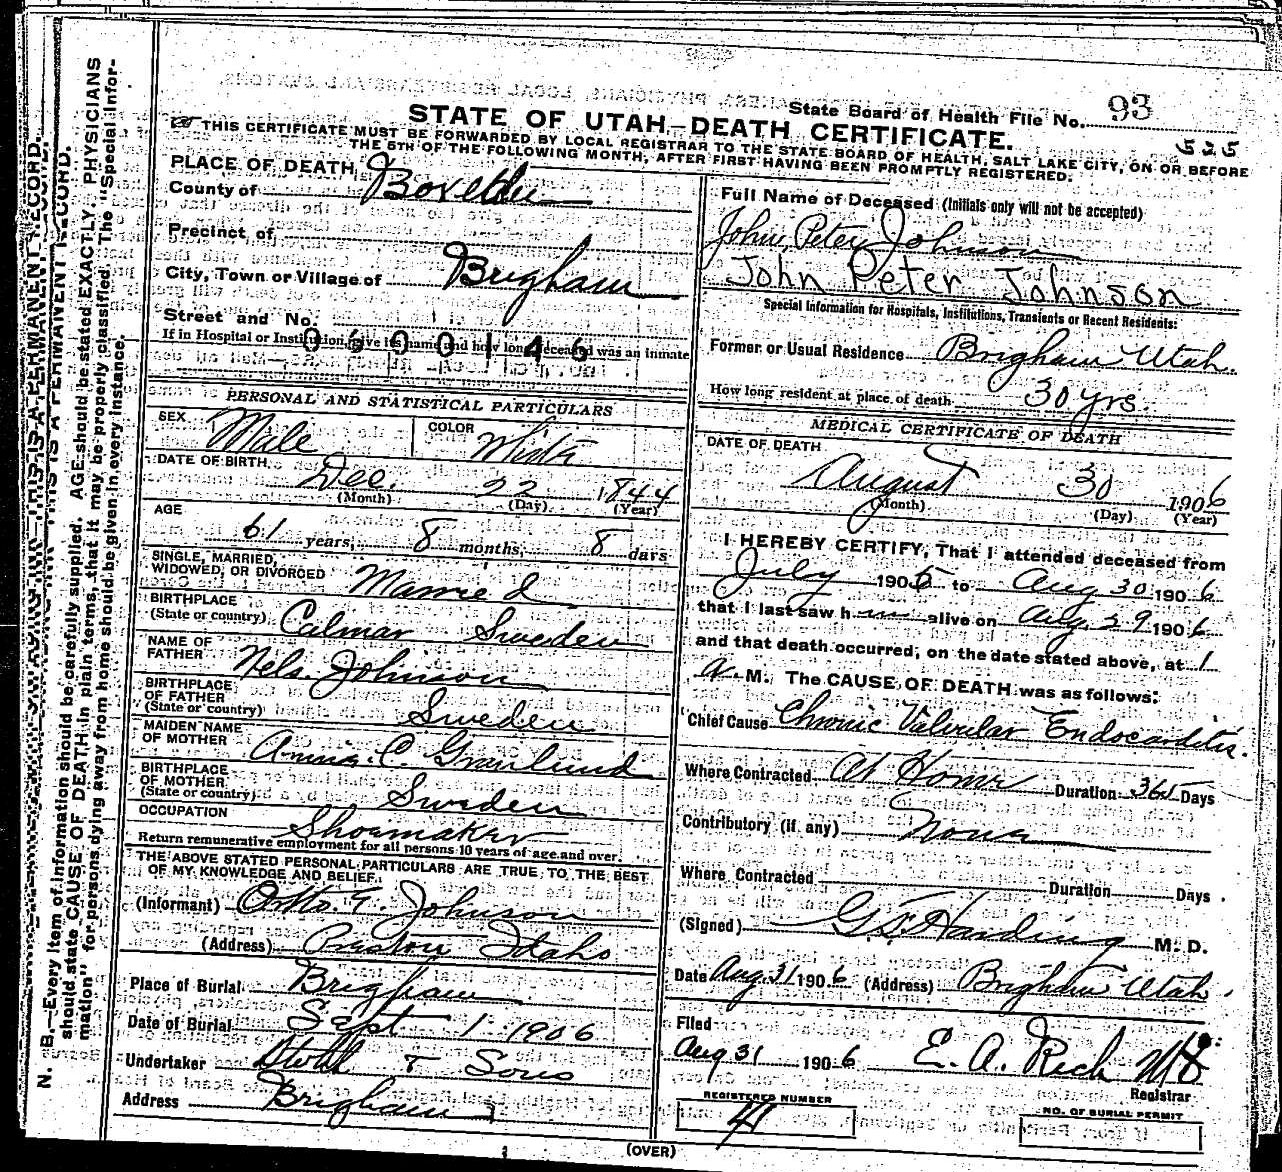 State Board of Health File No. 93
STATE OF UTAH—DEATH CERTIFICATE.
THIS CERTIFICATE MUST BE FORWARDED BY LOCAL REGISTRAR TO THE STATE BOARD OF HEALTH, SALT LAKE CITY, ON OR BEFORE
THE 5TH OF THE FOLLOWING MONTH, AFTER FIRST HAVING BEEN PROMPTLY REGISTERED.
525
N. B.—Every item of information should be carefully supplied. AGE should be stated EXACTLY. PHYSICIANS
should state CAUSE OF DEATH in plain terms, that it may be properly classified. The "Special Infor-
mation" for persons dying away from home should be given in every instance.
THIS IS A PERMANENT RECORD.
PLACE OF DEATH
County of Boxelder
Precinct of
City, Town or Village of Brigham
Street and No.
If in Hospital or Institution, give its name and how long deceased was an inmate
0 6 9 0 0 1 4 6
PERSONAL AND STATISTICAL PARTICULARS
SEX Male COLOR White
DATE OF BIRTH Dec. 22 1844
(Month) (Day) (Year)
AGE
61 years, 8 months, 8 days
SINGLE, MARRIED,
WIDOWED, OR DIVORCED Married
BIRTHPLACE
(State or country) Calmar Sweden
NAME OF
FATHER Nels Johnson
BIRTHPLACE
OF FATHER
(State or country) Sweden
MAIDEN NAME
OF MOTHER Annia C. Granlund
BIRTHPLACE
OF MOTHER
(State or country) Sweden
OCCUPATION
Shoemaker
Return remunerative employment for all persons 10 years of age and over.
THE ABOVE STATED PERSONAL PARTICULARS ARE TRUE TO THE BEST
OF MY KNOWLEDGE AND BELIEF.
(Informant) Otto T. Johnson
(Address) Preston Idaho
Place of Burial Brigham
Date of Burial Sept 1 1906
Undertaker & Sons
Address Brigham
Full Name of Deceased (Initials only will not be accepted)
John Peter Johnson
John Peter Johnson
Special Information for Hospitals, Institutions, Transients or Recent Residents:
Former or Usual Residence Brigham Utah.
How long resident at place of death 30 yrs.
MEDICAL CERTIFICATE OF DEATH
DATE OF DEATH
August 30 1906
(Month) (Day) (Year)
I HEREBY CERTIFY, That I attended deceased from
July 1905 to Aug 30 1906
that I last saw h im alive on Aug. 29 1906
and that death occurred, on the date stated above, at 1
a. M. The CAUSE OF DEATH was as follows:
Chief Cause Chronic Valvular Endocarditis.
Where Contracted At Home Duration 365 Days
Contributory (if any) None
Where Contracted Duration Days
(Signed) G. F. Harding M. D.
Date Aug. 31 1906 (Address) Brigham Utah
Filed
Aug 31 1906 E. A. Rich MD
Registrar
REGISTERED NUMBER
NO. OF BURIAL PERMIT
(OVER)